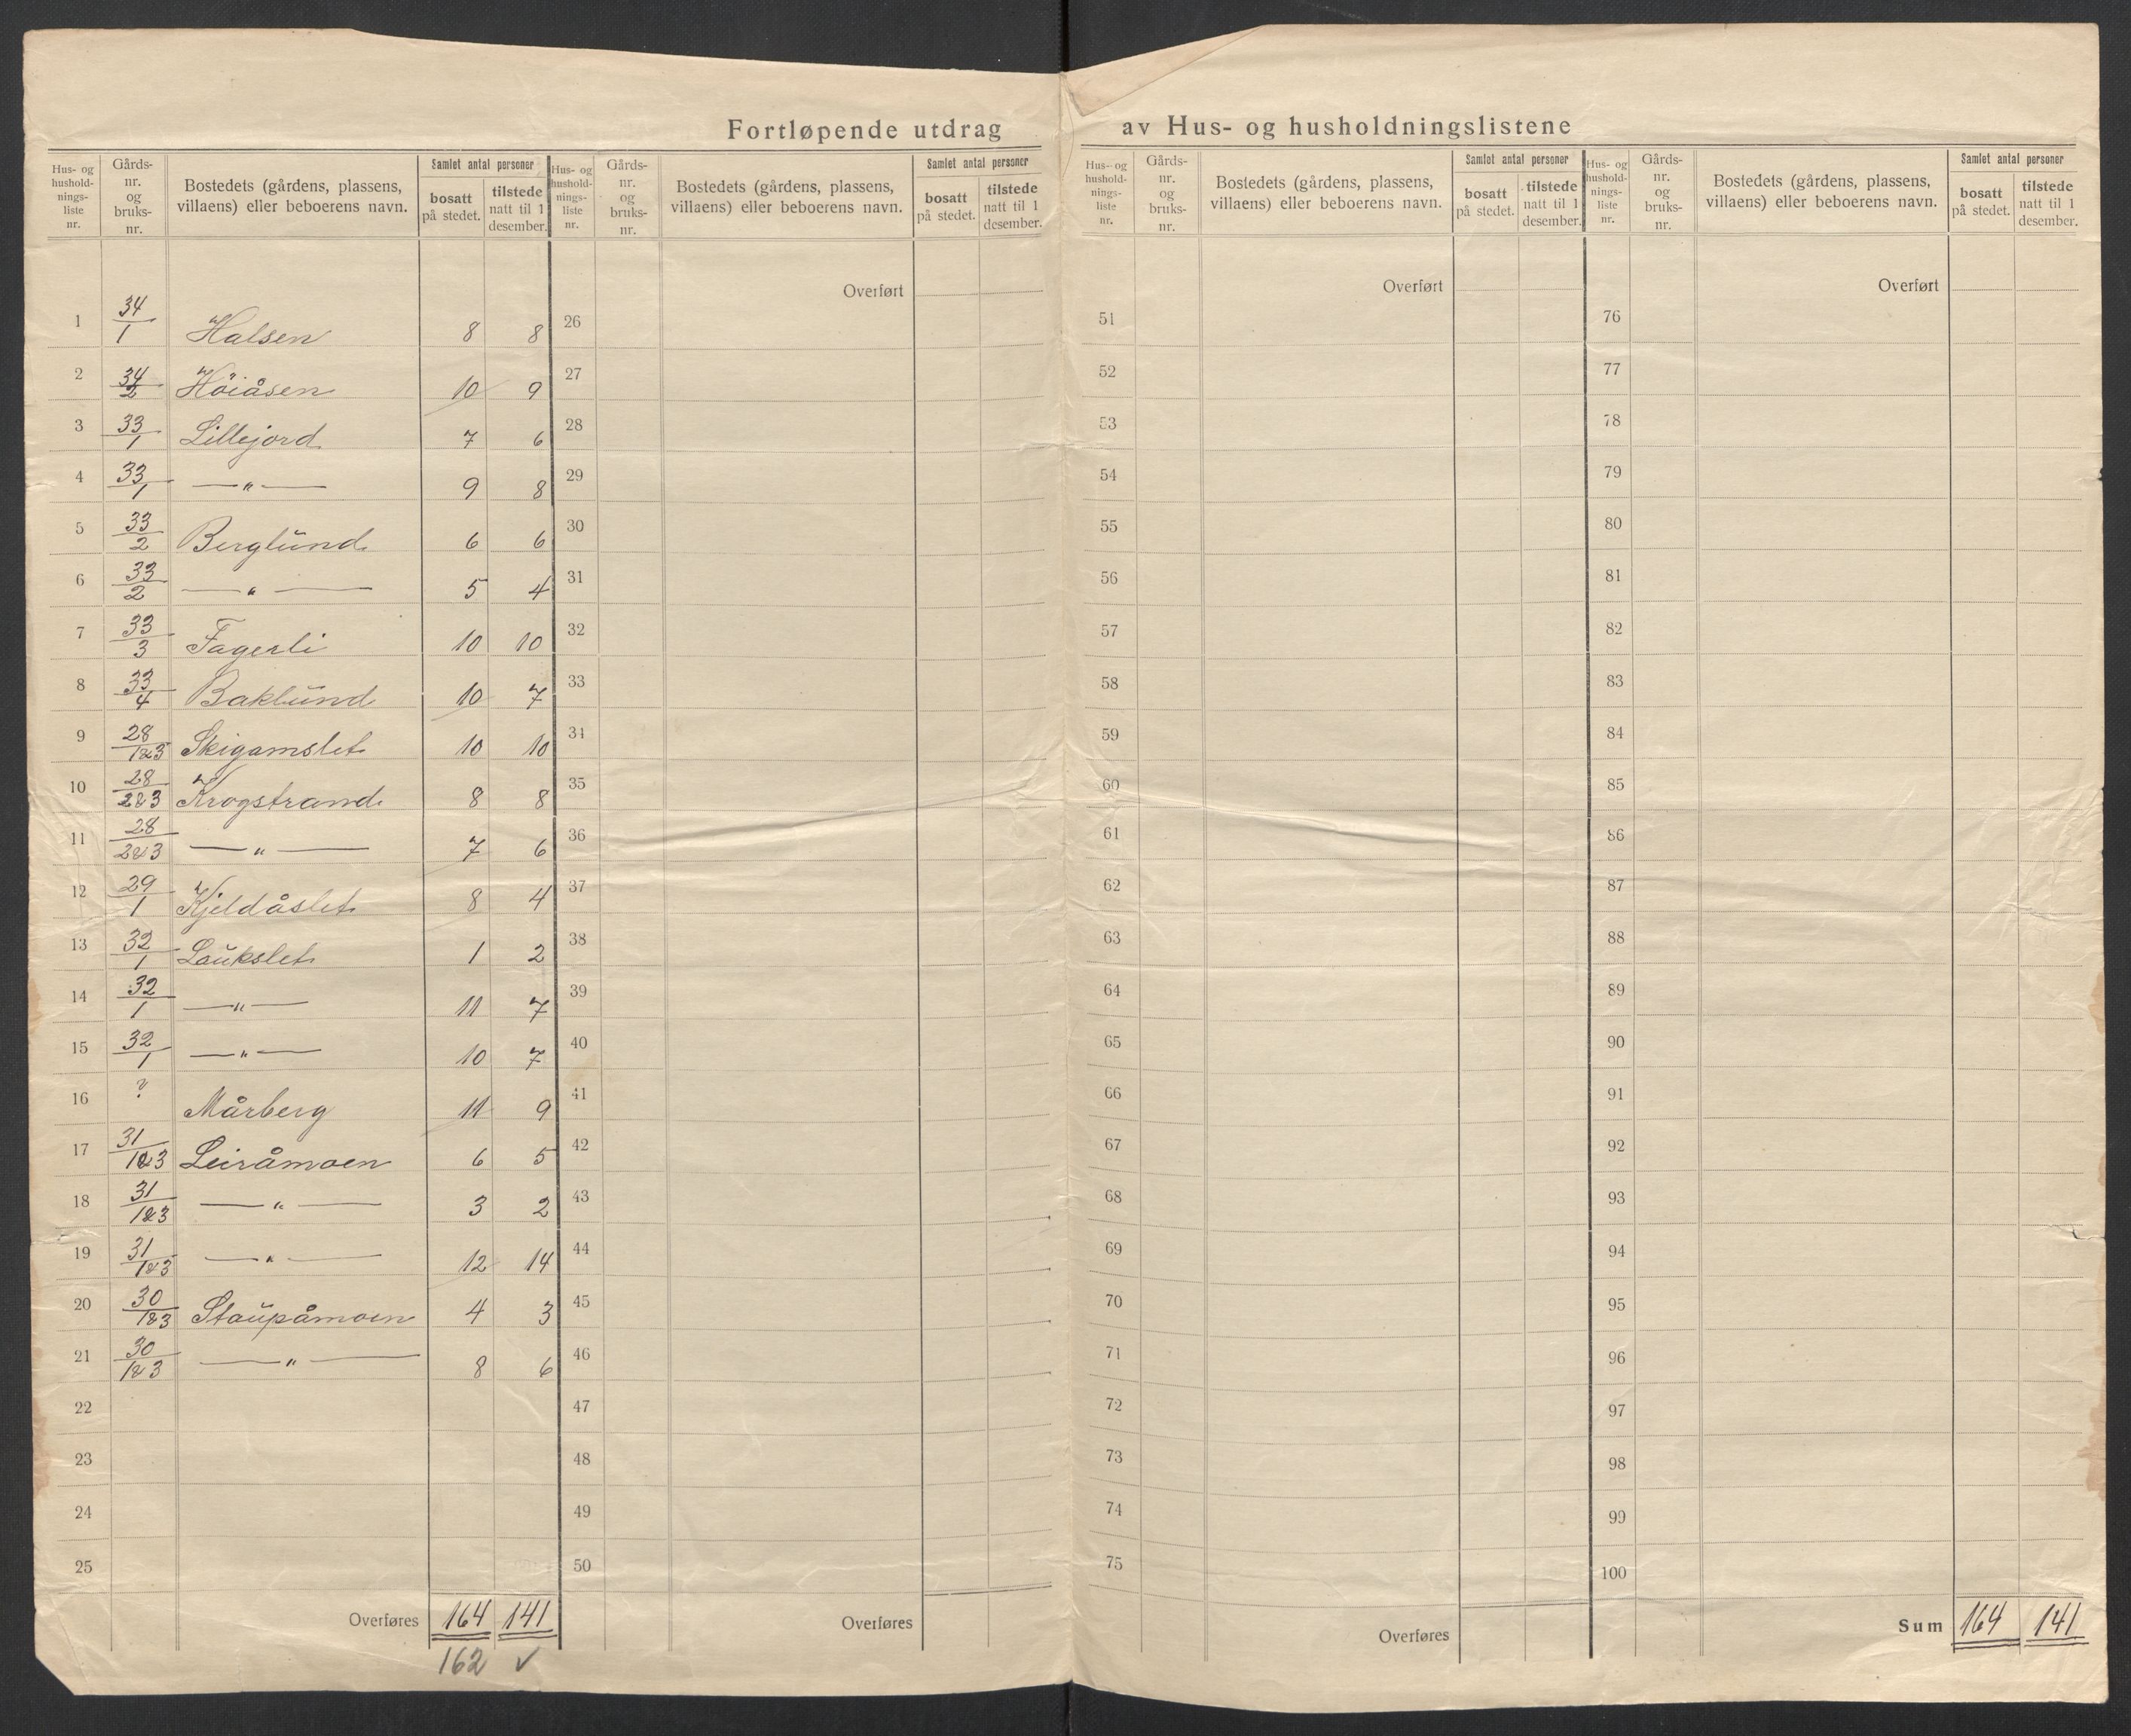 Fortløpende utdrag av Hus- og husholdningslistene
Hus- og hushold-nings-liste nr. | Gårds-nr. og bruks-nr. | Bostedets (gårdens, plassens, villaens) eller beboerens navn. | Samlet antal personer | bosatt på stedet. | tilstede natt til 1 desember.
1 34/1 Halsen 8 8
2 34/2 Höiåsen 10 9
3 33/1 Lillejord 7 6
4 33/1 —"— 9 8
5 33/2 Berglund 6 6
6 33/2 —"— 5 4
7 33/3 Fagerli 10 10
8 33/4 Baklund 10 7
9 28/1&3 Skigamslet 10 10
10 28/2&3 Krogstrand 8 8
11 28/2&3 —"— 7 6
12 29/1 Kjeldåslet 8 4
13 32/1 Laukslet 1 2
14 32/1 —"— 11 7
15 32/1 —"— 10 7
16 ? Mårberg 11 9
17 31/1&3 Leiråmoen 6 5
18 31/1&3 —"— 3 2
19 31/1&3 —"— 12 14
20 30/1&3 Staupåmoen 4 3
21 30/1&3 —"— 8 6
22
23
24
25
Overføres 164 141
162 ✓
Hus- og hushold-nings-liste nr. | Gårds-nr. og bruks-nr. | Bostedets (gårdens, plassens, villaens) eller beboerens navn. | Samlet antal personer | bosatt på stedet. | tilstede natt til 1 desember.
Overført
26
27
28
29
30
31
32
33
34
35
36
37
38
39
40
41
42
43
44
45
46
47
48
49
50
Overføres
Hus- og hushold-nings-liste nr. | Gårds-nr. og bruks-nr. | Bostedets (gårdens, plassens, villaens) eller beboerens navn. | Samlet antal personer | bosatt på stedet. | tilstede natt til 1 desember.
Overført
51
52
53
54
55
56
57
58
59
60
61
62
63
64
65
66
67
68
69
70
71
72
73
74
75
Overføres
Hus- og hushold-nings-liste nr. | Gårds-nr. og bruks-nr. | Bostedets (gårdens, plassens, villaens) eller beboerens navn. | Samlet antal personer | bosatt på stedet. | tilstede natt til 1 desember.
Overført
76
77
78
79
80
81
82
83
84
85
86
87
88
89
90
91
92
93
94
95
96
97
98
99
100
Sum 164 141